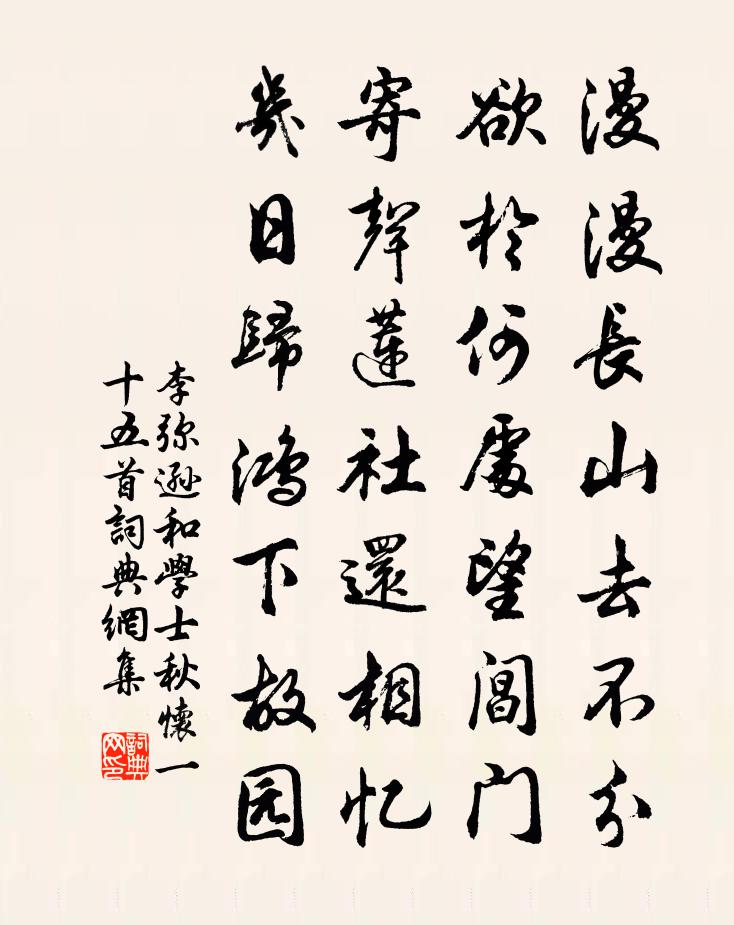 漫漫長山去不分
欲於何處望閶门
寄聲蓮社還相忆
幾日歸鸿下故园
李弥遜和學士秋懷一
十五首詞典網集
詞典网印